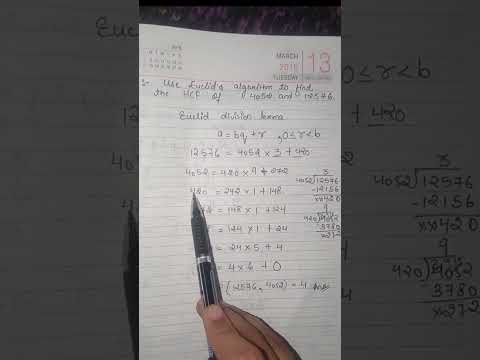 MARCH
2018
13
TUESDAY
Use Euclid's algorithm to find
the HCF of 4052 and 12576.
0≤r<b
Euclid division lemma
a = bq + r , 0≤r<b
12576 = 4052 × 3 + 420
4052 = 420 × 9 + 272
420 = 272 × 1 + 148
= 148 × 1 + 124
= 124 × 1 + 24
= 24 × 5 + 4
= 4 × 6 + 0
(12576, 4052) = 4 Ans
3
4052)12576
-12156
××420
9
420)4052
3780
×272
9
420)4052
3780
××272